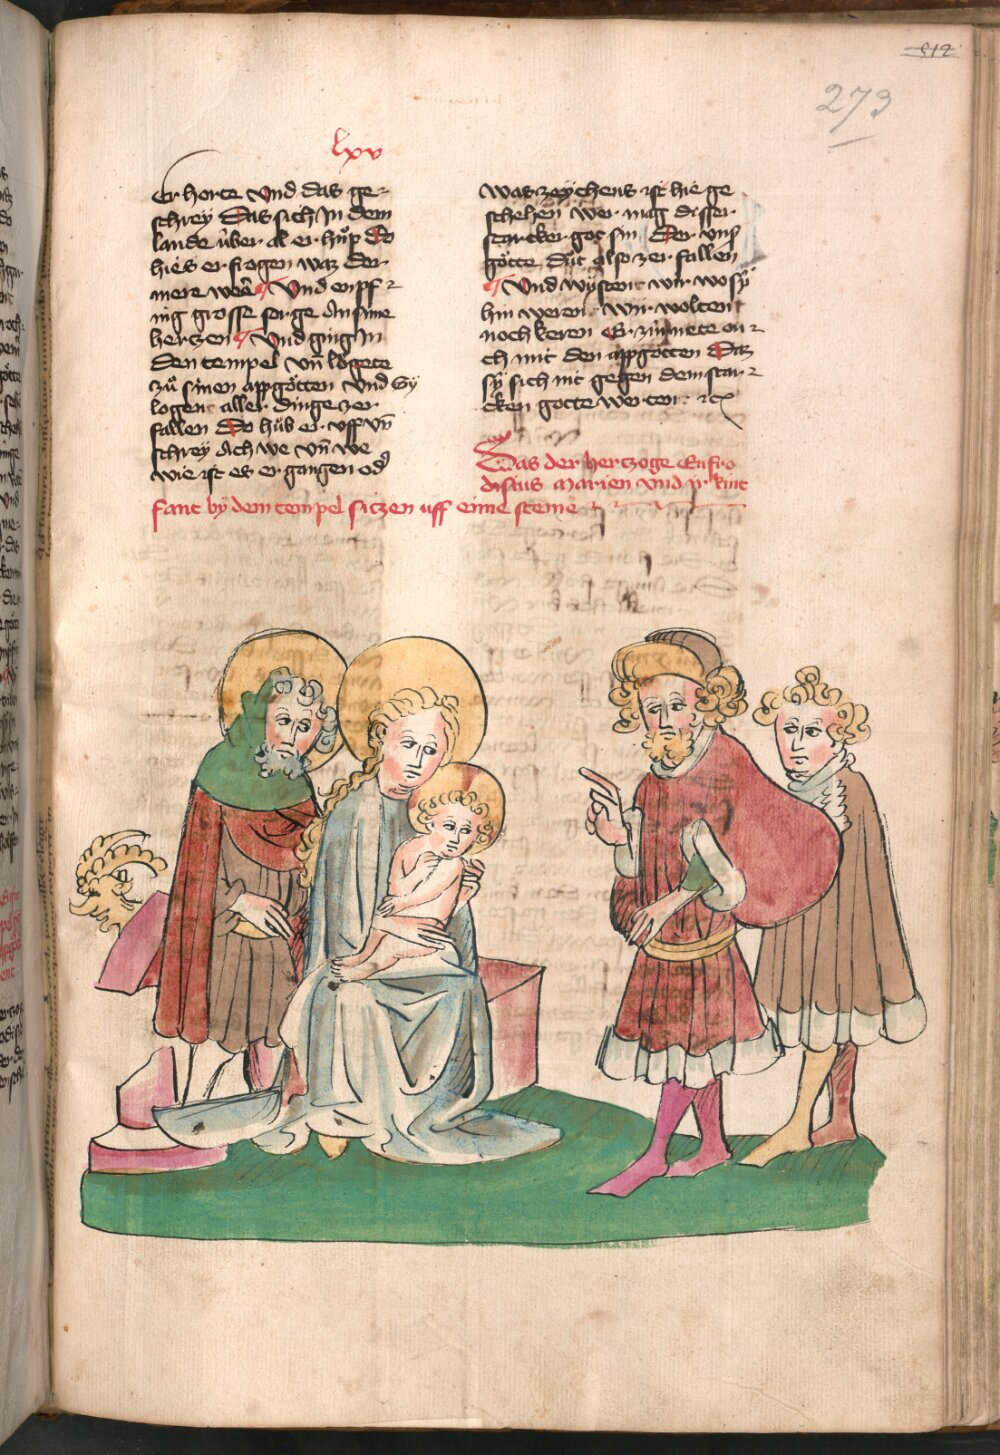 512
273
lxv
er horte Vnd das ge-
schrey Das sich Jn dem
lande über al er hůp Do
hies er fragen waz der
mere were Vnd enpf-
ing grosse sorge An sime
hertzen Vnd ging Jn
den tempel vn̄ lůgete
zů sinen appgötten Vnd sy
logent aller dinge zer
fallen Do hůb er vff vn̄
schrey Ach we vn̄ we
wie ist es er gangen od
was zeychens ist hie ge
schehen wer mag disser
starcker got sin Der vnß
götte důt also zer fallen
Vnd wysten wir wo sÿ
hin weren Wir wolten
noch keren Er zurnete ou-
ch mit den appgötten Daz
sÿ sich nit gegen dem star-
cken gotte werten etc
Das der hertzoge Eufro
disius Marien vnd ir kint
fant by dem tempel sitzen uff eime steine